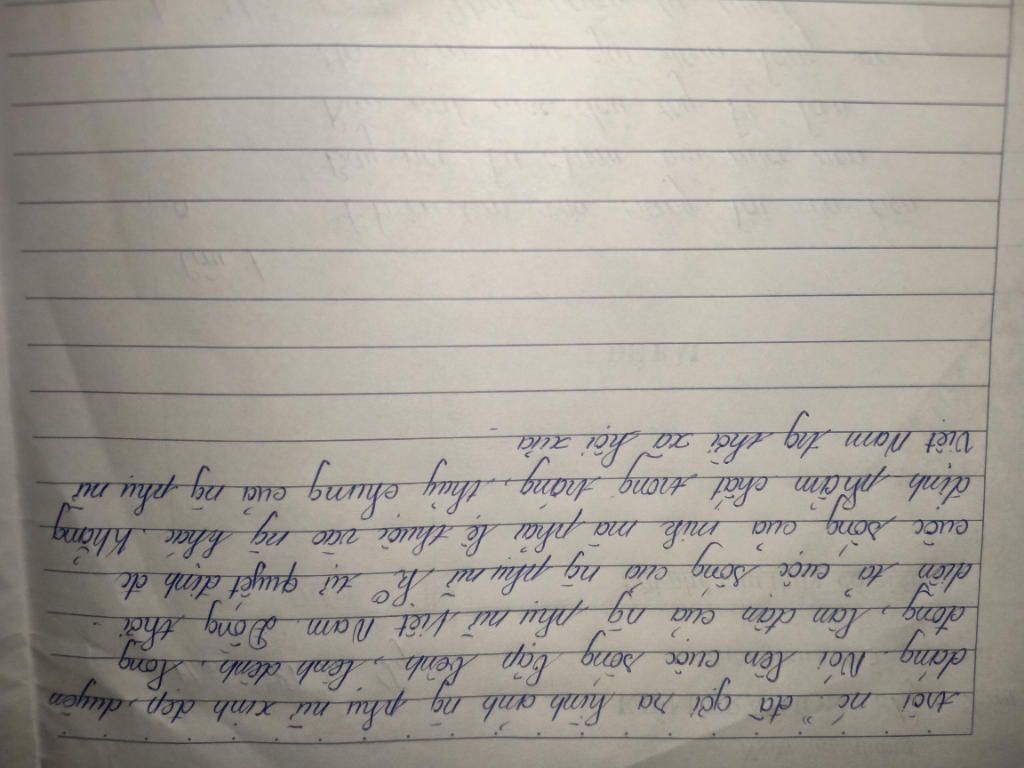 trôi nó" đã gợi ra hình ảnh ng phụ nữ xinh đẹp, duyên
dáng. Nói lên cuộc sống bấp bênh, lênh đênh, long
đong, lận đận của ng phụ nữ Việt Nam. Đồng thời
diễn tả cuộc sống của ng phụ nữ k° tự quyết định đc
cuộc sống của mik mà phải lệ thuộc vào ng khác. Khẳng
định phẩm chất trong trắng, thủy chung của ng phụ nữ
Việt Nam trg thời xã hội xưa